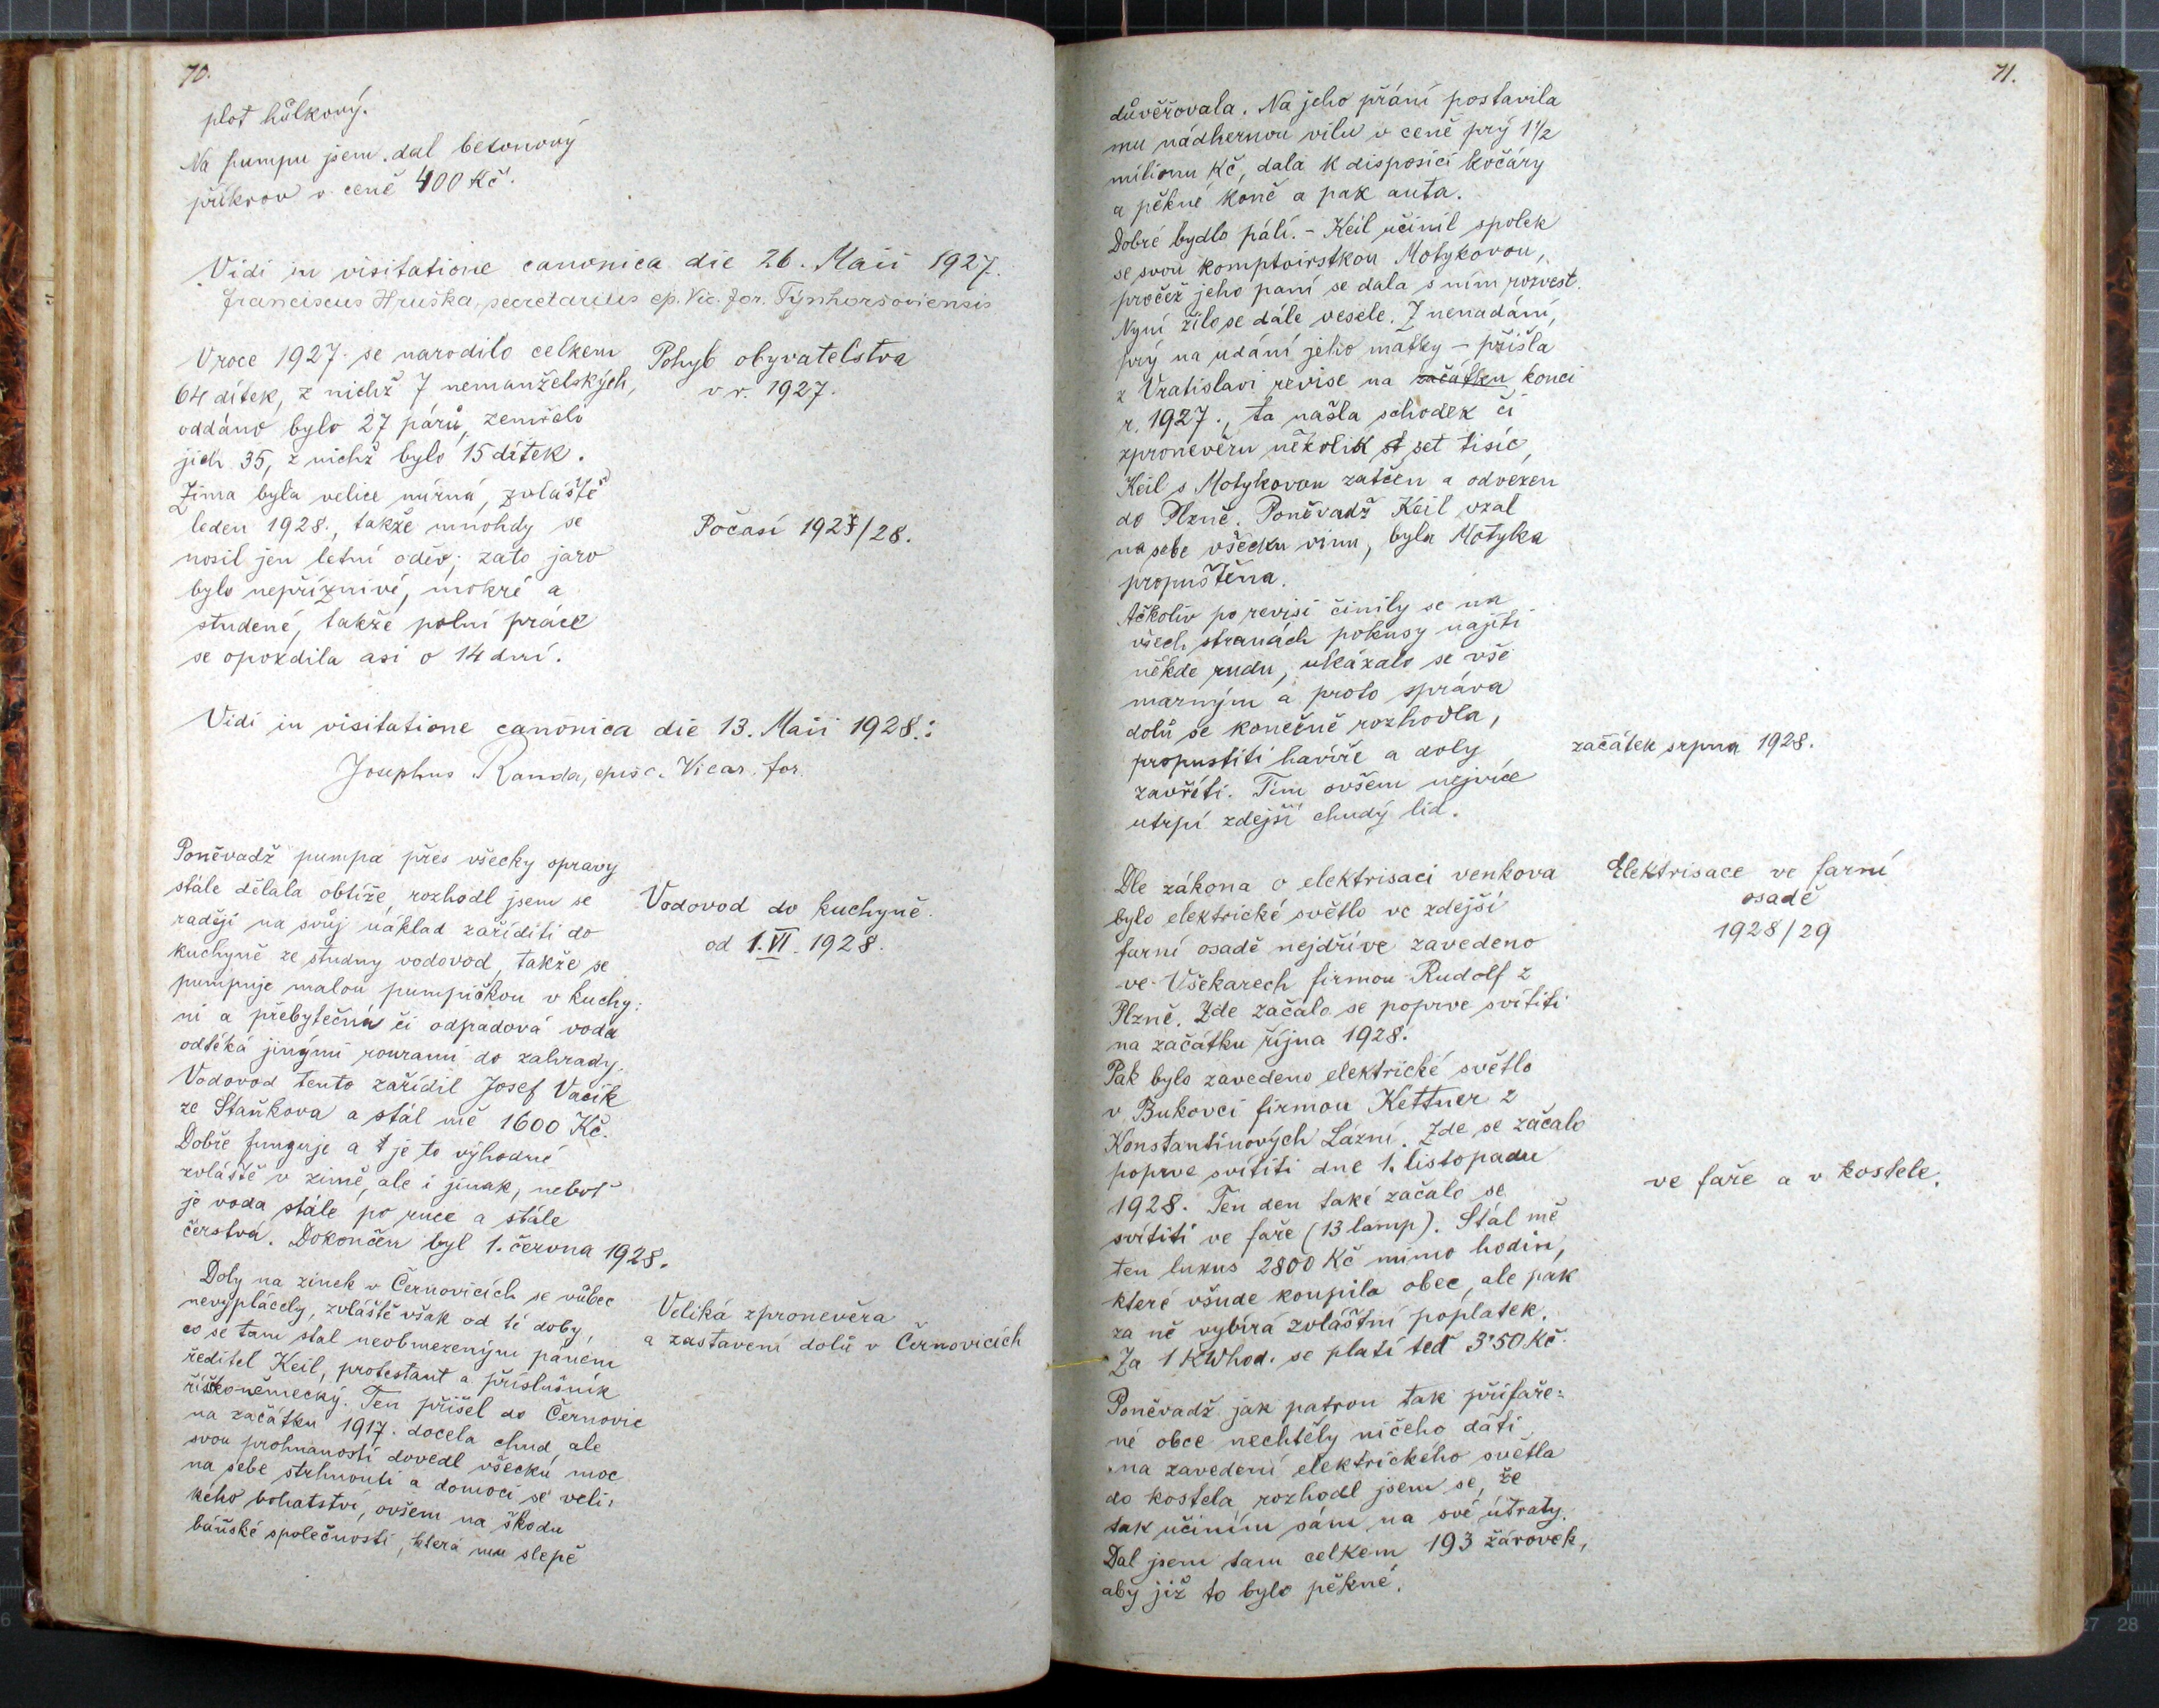 70.
plot hůlkový.
Na pumpu jsem dal betonový
příkrov v ceně 400 Kč.
Vidi in visitatione canonica die 26. Maii 1927.
Franciscus Hruška, secretarius ep. Vic. for. Týnhoršoviensis
V roce 1927. se narodilo celkem
64 dítek, z nichž 7 nemanželských,
oddáno bylo 27 párů, zemřelo
jich 35, z nichž bylo 15 dítek.
Pohyb obyvatelstva
v r. 1927.
Zima byla velice mírná, zvláště
leden 1928., takže mnohdy se
nosil jen letní oděv; zato jaro
bylo nepříznivé, mokré a
studené, takže polní práce
se opozdila asi o 14 dní.
Počasí 1927/28.
Vidi in visitatione canonica die 13. Maii 1928.:
Josephus Randa, episc. Vicar. for.
Poněvadž pumpa přes všecky opravy
stále dělala obtíže, rozhodl jsem se
raději na svůj náklad zaříditi do
kuchyně ze studny vodovod, takže se
pumpuje malou pumpičkou v kuchy:
ni a přebytečná či odpadová voda
odtéká jinými rourami do zahrady.
Vodovod tento zařídil Josef Vacík
ze Staňkova a stál mě 1600 Kč.
Dobře funguje a t je to výhodné
zvláště v zimě, ale i jinak, neboť
je voda stále po ruce a stále
čerstvá. Dokončen byl 1. června 1928.
Vodovod do kuchyně.
od 1. VI. 1928.
Doly na zinek v Černovicích se vůbec
nevyplácely, zvláště však od té doby,
co se tam stal neobmezeným pánem
ředitel Keil, protestant a příslušník
říškoněmecký. Ten přišel do Černovic
na začátku 1917. docela chud, ale
svou prohnaností dovedl všecku moc
na sebe strhnouti a domoci se veli:
kého bohatství, ovšem na škodu
báňské společnosti, která mu slepě
Veliká zpronevěra
a zastavení dolů v Černovicích
71.
důvěřovala. Na jeho přání postavila
mu nádhernou vilu v ceně prý 1 1/2
milionu Kč, dala k disposici kočáry
a pěkné koně a pak auta.
Dobré bydlo pálí. - Keil učinil spolek
se svou komptoirstkou Motykovou,
pročež jeho paní se dala s ním rozvest.
Nyní žilo se dále vesele. Z nenadání,
prý na udání jeho matky - přišla
z Vratislavi revise na začátku konci
r. 1927., ta našla schodek či
zpronevěru několik st set tisíc,
Keil s Motykovou zatčen a odvezen
do Plzně. Poněvadž Keil vzal
na sebe všecku vinu, byla Motyka
propuštěna.
Ačkoliv po revisi činily se na
všech stranách pokusy najíti
někde rudu, ukázalo se vše
marným a proto správa
dolů se konečně rozhodla,
propustiti havíře a doly
zavříti. Tím ovšem nejvíce
utrpí zdejší chudý lid.
začátek srpna 1928.
Dle zákona o elektrisaci venkova
bylo elektrické světlo ve zdejší
farní osadě nejdříve zavedeno
ve Všekarech firmou Rudolf z
Plzně. Zde začalo se poprve svítiti
na začátku října 1928.
Elektrisace ve farní
osadě
1928/29
Pak bylo zavedeno elektrické světlo
v Bukovci firmou Kettner z
Konstantinových Lázní. Zde se začalo
poprve svítiti dne 1. listopadu
1928. Ten den také začalo se
svítiti ve faře (13 lamp). Stál mě
ten luxus 2800 Kč mimo hodin,
které všude koupila obec, ale pak
za ně vybírá zvláštní poplatek.
Za 1 KWhod. se platí teď 3·50 Kč.
ve faře a v kostele.
Poněvadž jak patron tak přifaře:
né obce nechtěly ničeho dáti
na zavedení elektrického světla
do kostela, rozhodl jsem se, že
tak učiním sám na své útraty.
Dal jsem tam celkem 193 žárovek,
aby již to bylo pěkné.